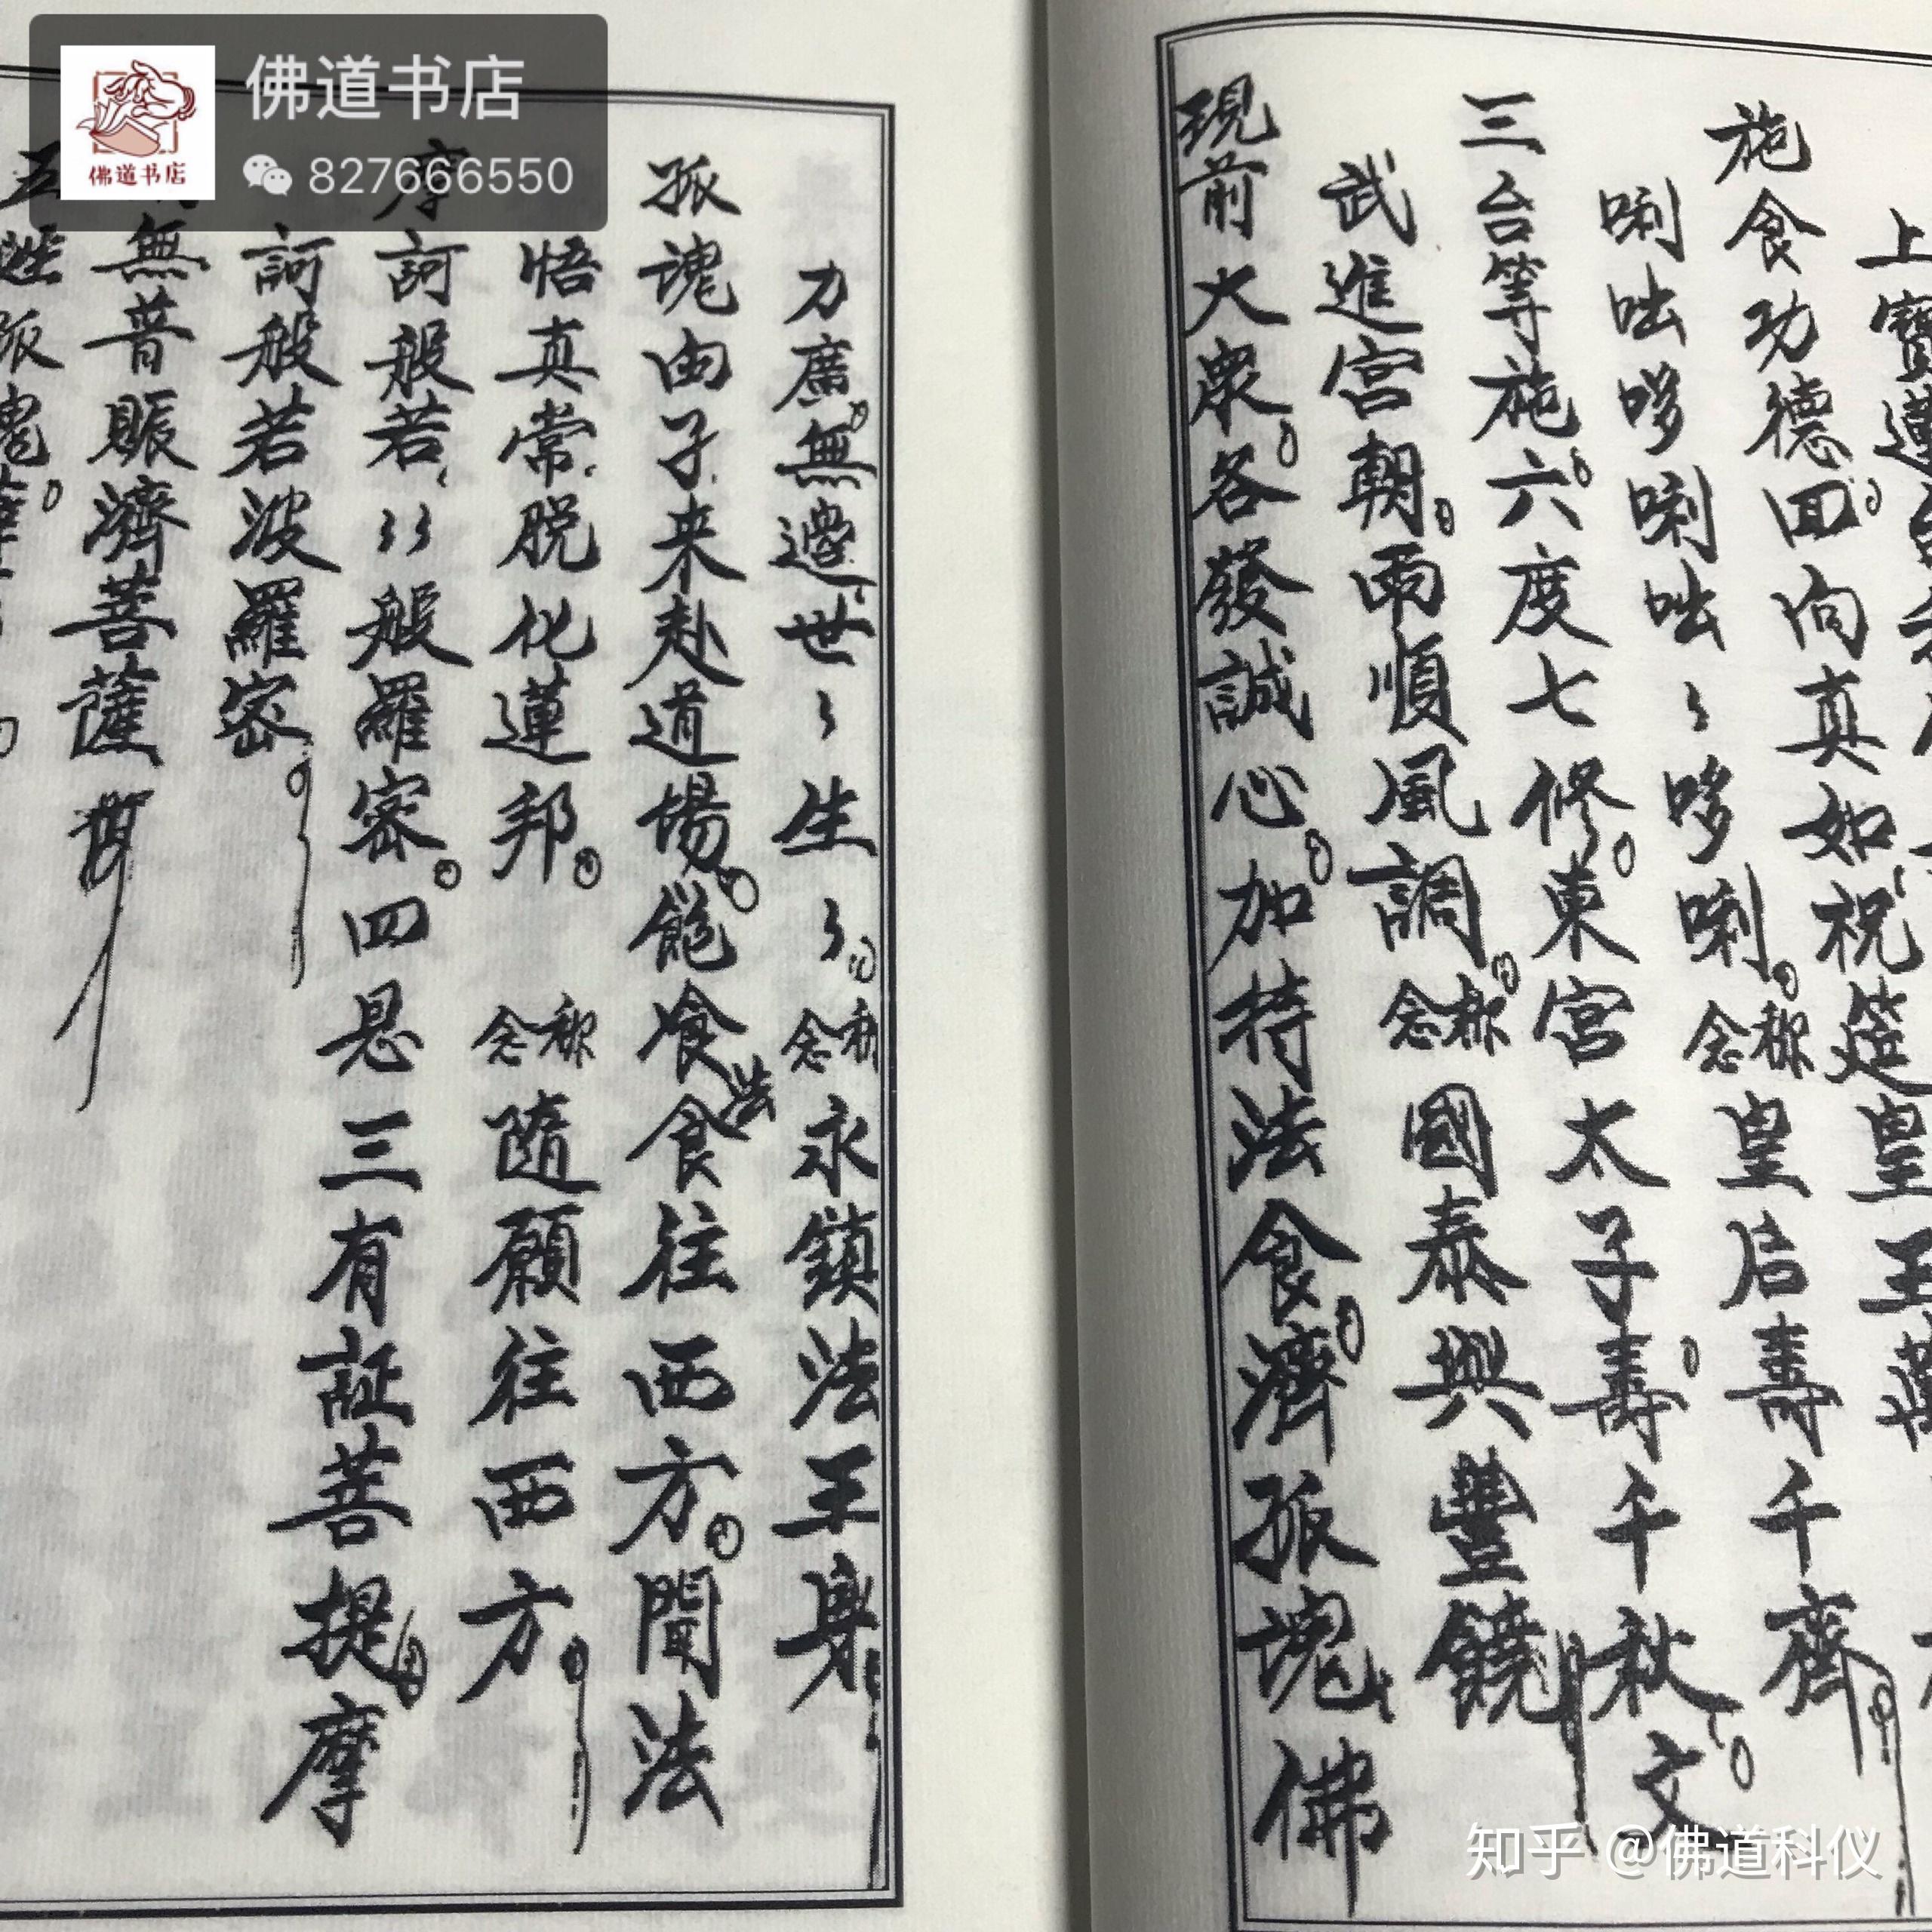 佛道书店
827666550
佛道书店
上寶蓮
皇王萬
施食功德回向真如祝筵
唎咄哆唎咄〻哆唎稱念皇后壽千齊
三台等施六度七修東宮太子壽千秋文
武進宮朝雨順風調稱念國泰興豐饒
現前大眾各發誠心加持法食濟孤魂佛
力廣無邊世〻生〻稱念永鎮法王身
孤魂由子来赴道場能飡法食往西方聞法
悟真常脱化蓮邦稱念隨願往西方
摩訶般若〻〻般羅密四恩三有証菩提摩
訶般若波羅密
無普賬濟菩薩
五
孤魂
知乎 @佛道科仪